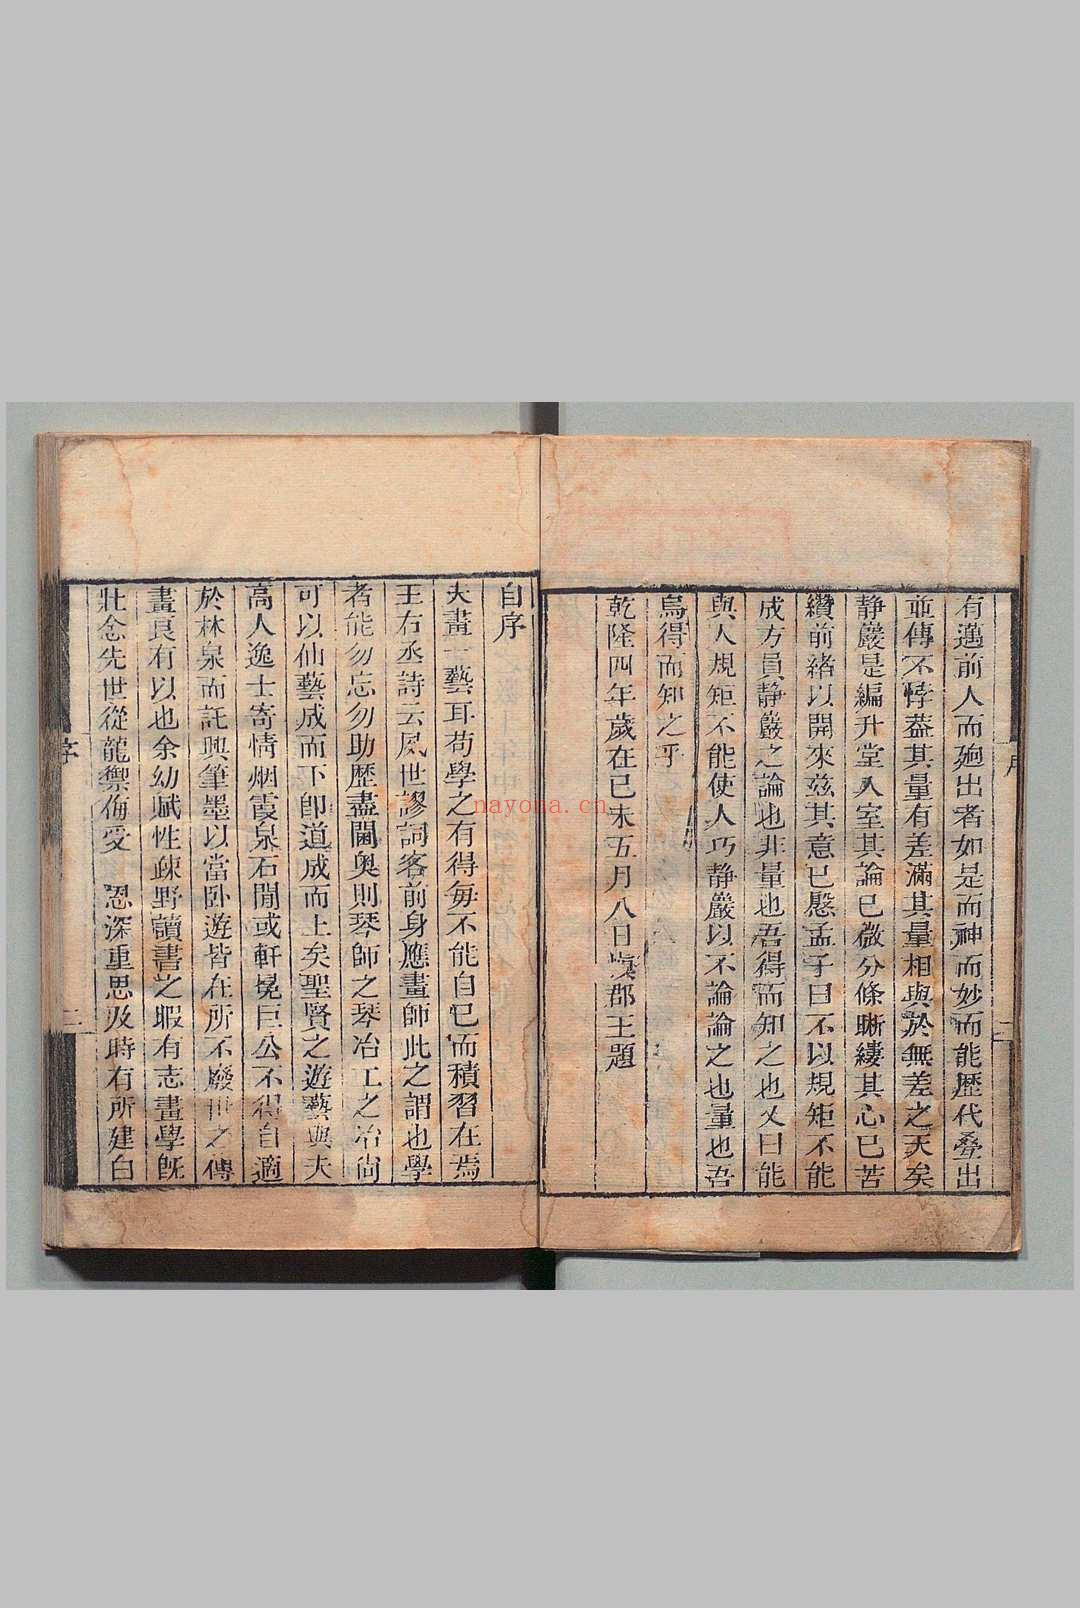 有邁前人而逈出者如是而神而妙而能歷代叠出
並傳不悖葢其量有差滿其量相與於無差之天矣
静巖是編升堂入室其論已微分條晰縷其心已苦
纘前緒以開來兹其意已慇孟子曰不以規矩不能
成方員静巖之論也非量也吾得而知之也又曰能
與人規矩不能使人巧静巖以不論論之也量也吾
烏得而知之乎
乾隆四年歲在已未五月八日慎郡王題
序
二
自序
夫畫一藝耳苟學之有得每不能自已而積習在焉
王右丞詩云夙世謬詞客前身應畫師此之謂也學
者能勿忘勿助歷盡閫奥則琴師之琴冶工之冶尚
可以仙藝成而下卽道成而上矣聖賢之遊藝與夫
高人逸士寄情烟霞泉石閒或軒冕巨公不得自適
於林泉而託興筆墨以當卧遊皆在所不廢世之傳
畫良有以也余幼賦性疎野讀書之暇有志畫學旣
壯念先世從龍禦侮受 恩深重思及時有所建白
序
nayona.cn